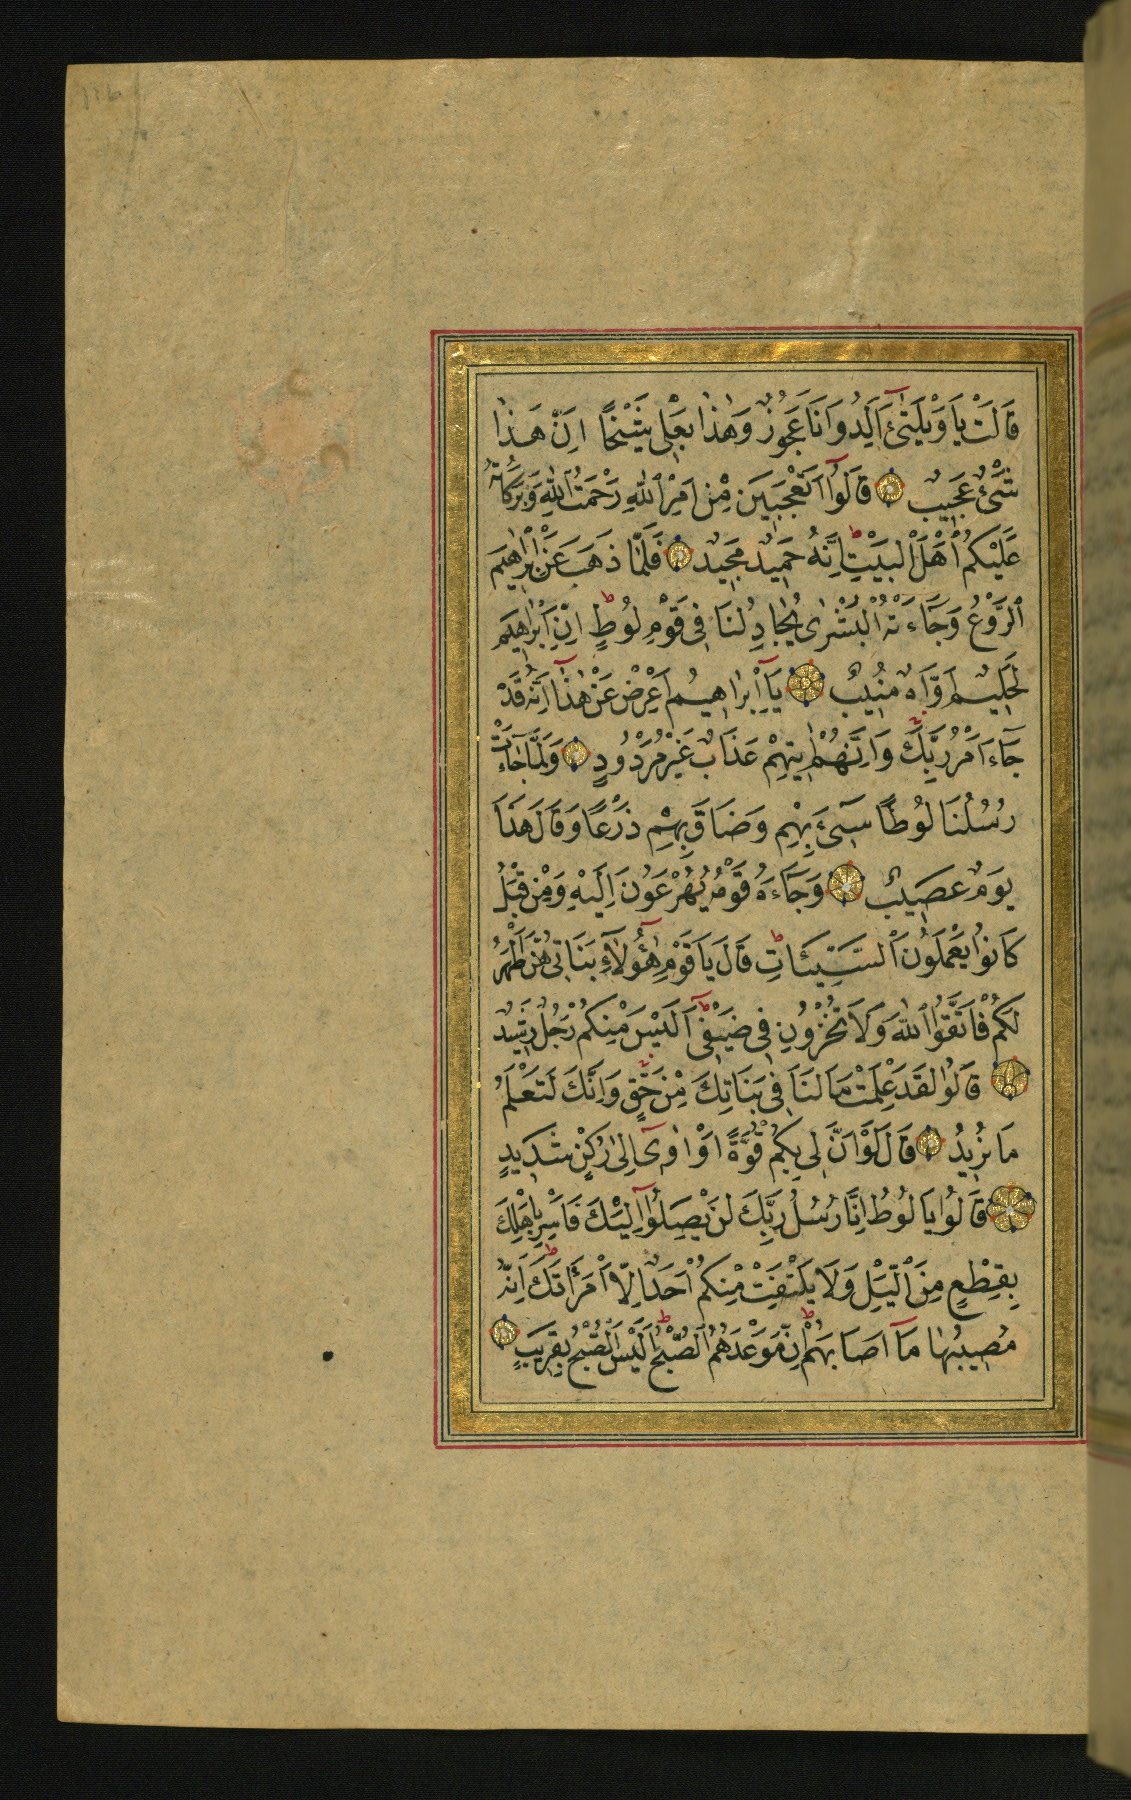 قَالَتْ يَا وَيْلَتٰىٓ ءَاَلِدُ وَاَنَا عَجُوزٌ وَهٰذَا بَعْلِى شَيْخًا اِنَّ هَـذَا
شَىْءٌ عَجِيبٌ قَالُوٓا اَتَعْجَبِينَ مِنْ اَمْرِ اللّٰهِ رَحْمَتُ اللّٰهِ وَبَرَكَاتُهُ
عَلَيْكُمْ اَهْلَ الْبَيْتِ اِنَّهُ حَمِيدٌ مَجِيدٌ فَلَمَّا ذَهَبَ عَنْ اِبْرٰهِيمَ
الرَّوْعُ وَجَٓاءَتْهُ الْبُشْرٰى يُجَادِلُنَا فِى قَوْمِ لُوطٍ اِنَّ اِبْرٰهِيمَ
لَحَلِيمٌ اَوَّاهٌ مُنِيبٌ يَٓا اِبْرٰاهِيمُ اَعْرِضْ عَنْ هٰذَٓا اِنَّهُ قَدْ
جَٓاءَ اَمْرُ رَبِّكَ وَاِنَّهُمْ اٰتِيهِمْ عَذَابٌ غَيْرُ مَرْدُودٍ وَلَمَّا جَٓاءَتْ
رُسُلُنَا لُوطًا سِىٓءَ بِهِمْ وَضَاقَ بِهِمْ ذَرْعًا وَقَالَ هَذَا
يَوْمٌ عَصِيبٌ وَجَٓاءَهُ قَوْمُهُ يُهْرَعُونَ اِلَيْهِ وَمِنْ قَبْلُ
كَانُوا يَعْمَلُونَ السَّيِّئَاتِ قَالَ يَا قَوْمِ هٰٓؤُلَٓاءِ بَنَاتِى هُنَّ اَطْهَرُ
لَكُمْ فَاتَّقُوا اللّٰهَ وَلَا تُخْزُونِ فِى ضَيْفِى اَلَيْسَ مِنْكُمْ رَجُلٌ رَشِيدٌ
قَالُوا لَقَدْ عَلِمْتَ مَا لَنَا فِى بَنَاتِكَ مِنْ حَقٍّ وَاِنَّكَ لَتَعْلَمُ
مَا نُرِيدُ قَالَ لَوْ اَنَّ لِى بِكُمْ قُوَّةً اَوْ اٰوِىٓ اِلٰى رُكْنٍ شَدِيدٍ
قَالُوا يَا لُوطُ اِنَّا رُسُلُ رَبِّكَ لَنْ يَصِلُوٓا اِلَيْكَ فَاَسْرِ بِاَهْلِكَ
بِقِطْعٍ مِنَ الَّيْلِ وَلَا يَلْتَفِتْ مِنْكُمْ اَحَدٌ اِلَّا امْرَاَتَكَ اِنَّهُ
مُصِيبُهَا مَٓا اَصَابَهُمْ اِنَّ مَوْعِدَهُمُ الصُّبْحُ اَلَيْسَ الصُّبْحُ بِقَرِيبٍ